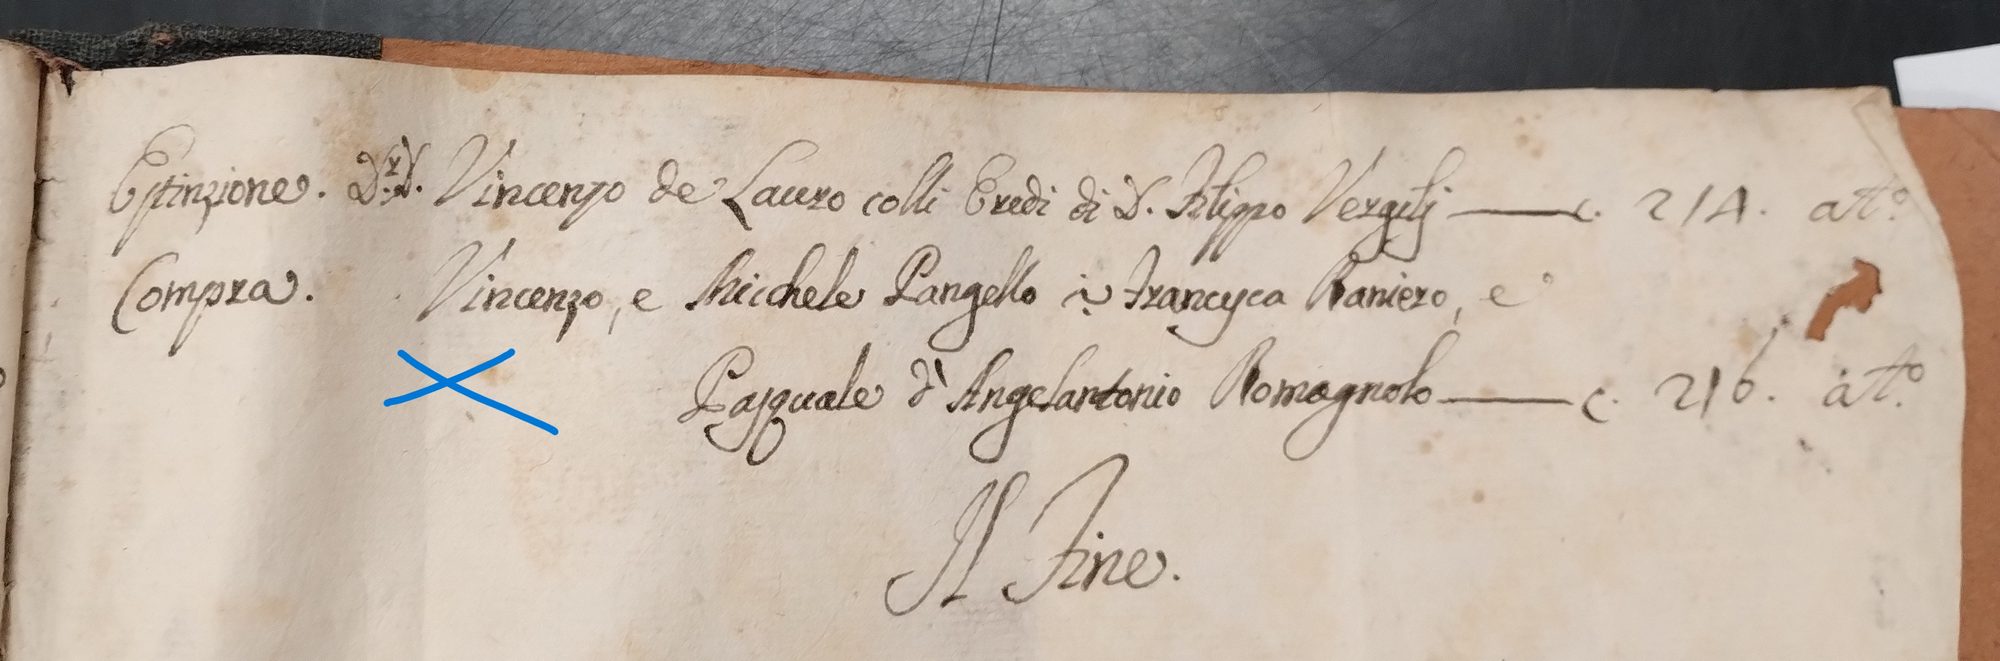 Estinzione. D.r D. Vincenzo de Lauro colli Eredi di D. Filippo Vergilj — c. 214. at.o
Compra. Vincenzo, e Michele Pangello i Francesca Raniero, e
Pasquale d'Angelantonio Romagnolo — c. 216. at.o
Il Fine.